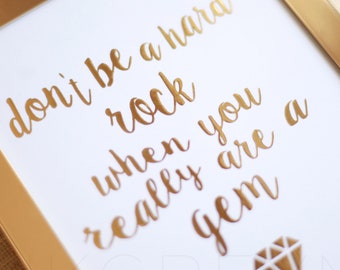 don't be a hard
rock
when you
really are a
gem